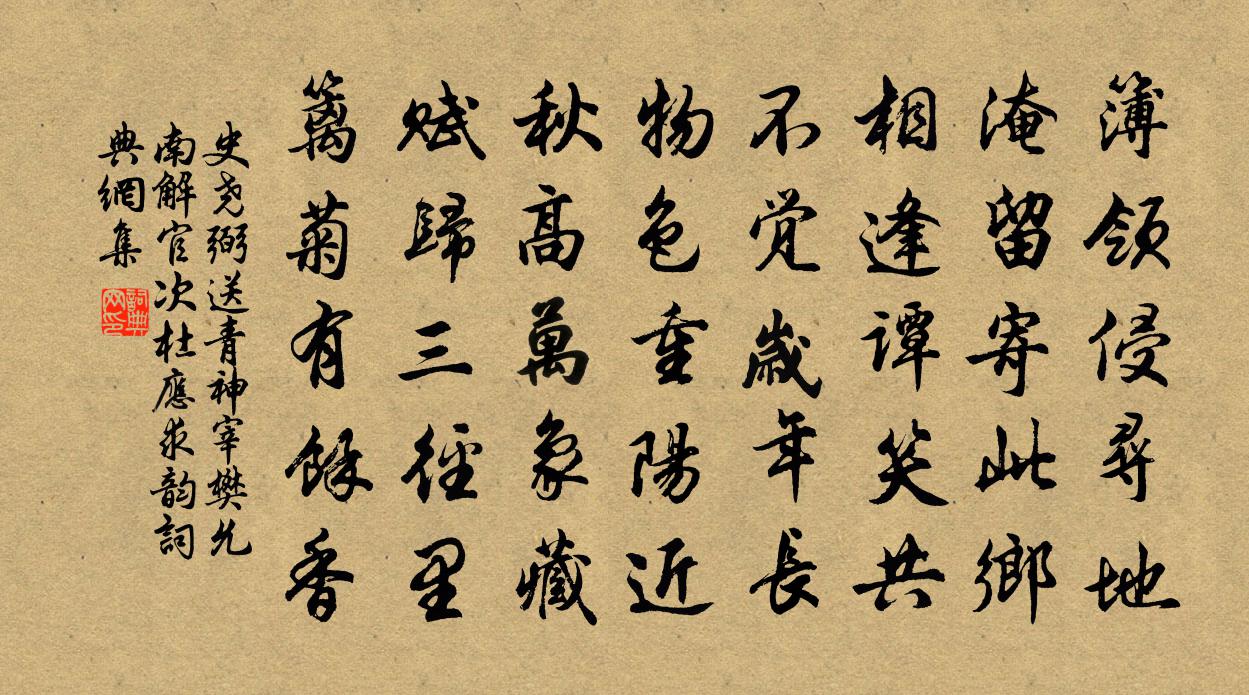 簿領侵尋地
淹留寄此鄉
相逢譚笑共
不覚歳年長
物色重陽近
秋高萬象藏
賦歸三徑里
籬菊有餘香
史尧弼送青神宰樊允
南解官次杜應求韵詞
典網集
詞典网印